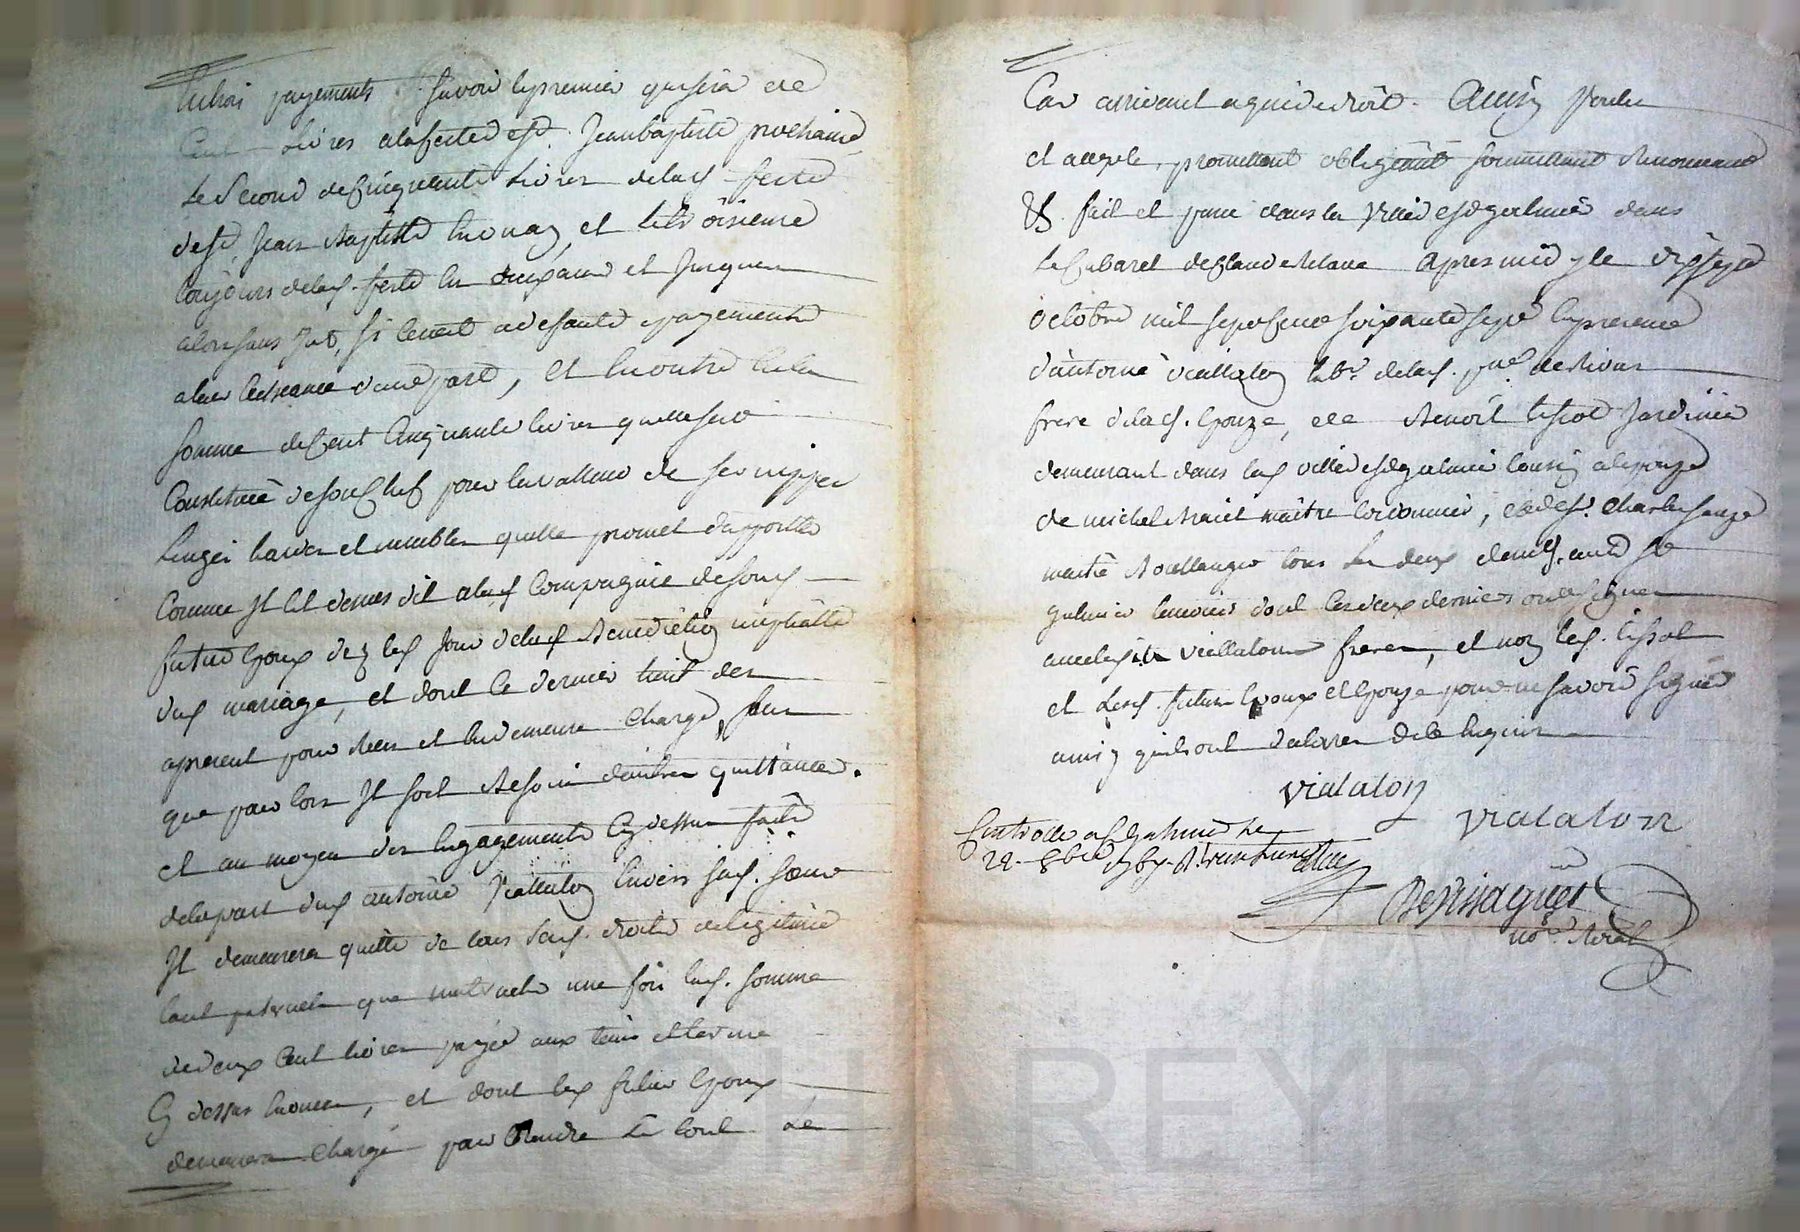 trois payements savoir le premier qui sera de
Cent livres a la feste de st. Jean baptiste prochaine
le second de Cinquante livres de lad. feste
de st. Jean Baptiste en un an, et le troisieme
toujours de lad. feste en deux ans et jusques
alors sans
a leur Echeance d'une part, et en outre de la
somme de Cent Cinquante livres quelle se
Constitue de son Chef pour la valleur de ses nippes
linges hardes et meubles quelle promet d'apporter
Comme il est dessus dit a la Compagnie de son
futur Epoux dez le jour de la Benediction nuptialle
dud. mariage, et dont ce dernier tient des
apresent pour Recu et en demeure Chargé, sans
que pour lors Il soit Besoin d'autre quittance.
et au moyen des Engagements Cy dessus faits
de la part dud. antoine Viallaton Envers sad. soeur
Il demeurera quitte de tous sesd. droits de legitime
tant paternels que maternels une fois lad. somme
de deux Cent livres payée aux tems et terme
Cy dessus Enoncés, et dont led. futur Epoux
demeurera Chargé pour Rendre Le tout Le
Cas arrivant a qui de droit. Ainsy voulu
et accepté, promettant obligeant soumettant Renonceant
&. fait et passé dans la ville de st galmier dans
Le Cabaret de Claude apres midy le dixsept
octobre mil sept Cent soixante sept En presence
d'antoine viallaton lab.r de lad. p.sse de Rivas
frere de lad. Epouze, de Benoit tissot Jardinier
demeurant dans lad. ville de st galmier Cousin a l'epouze
de michel maitre Cordonnier, et de sr. Charle
maitre Boullanger tous Les deux dud. st
galmier temoins dont les deux derniers ont signé
avec lesd. viallatons freres, et non led. tissot
et Lesd. futurs Epoux et Epouze pour ne savoir signer
ainsy quils ont declaré de ce Enquis
viataton
viataton
Controllé a st galmier le
22. 8bre 1767. R.
Bessagues
no.re Roial
LECHAREYRON